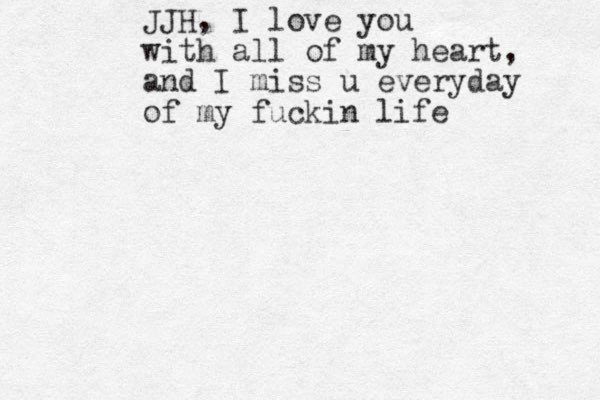 JJH, I love you
with all of my heart,
and I miss u everyday
of my fuckin life